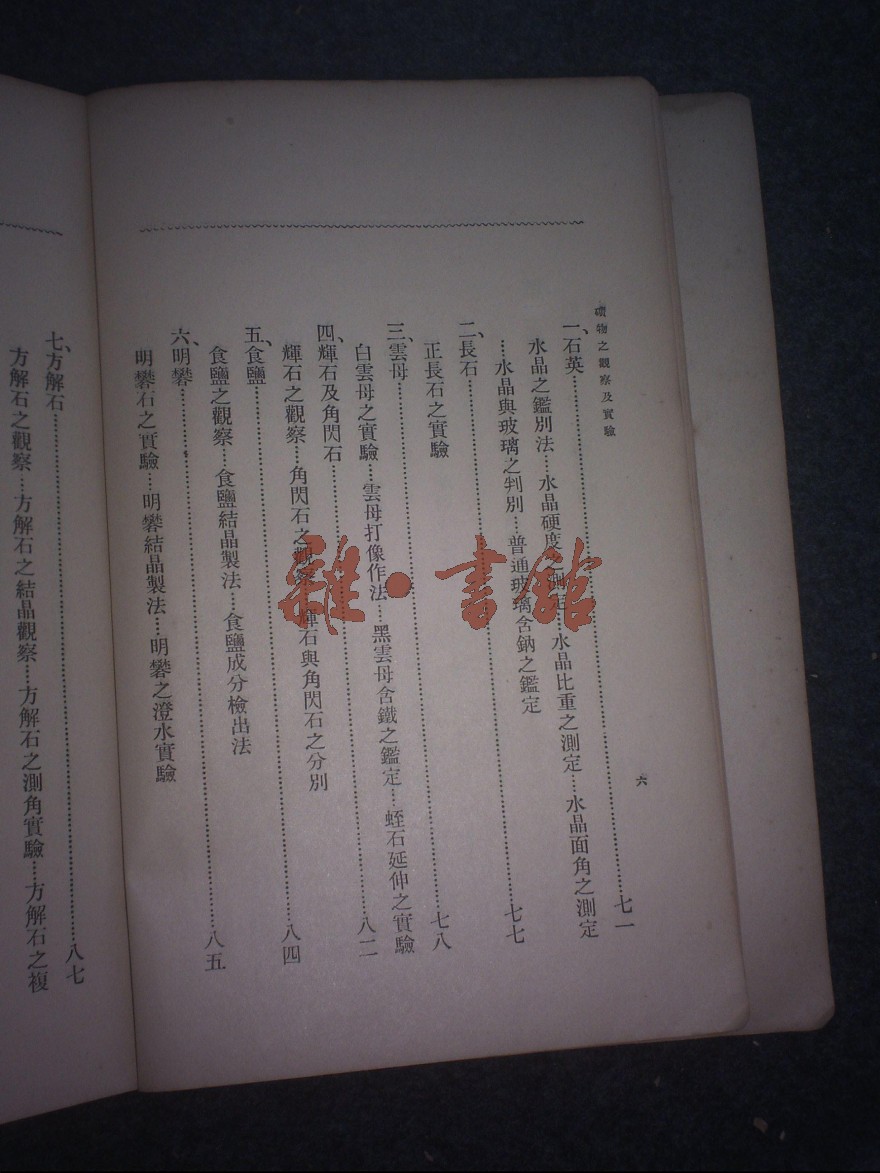 礦物之觀察及實驗
六
一、石英……七一
水晶之鑑別法…水晶硬度之測定…水晶比重之測定…水晶面角之測定
…水晶與玻璃之判別…普通玻璃含鈉之鑑定
二、長石……七七
正長石之實驗
三、雲母……七八
白雲母之實驗…雲母打像作法…黑雲母含鐵之鑑定…蛭石延伸之實驗
四、輝石及角閃石……八二
輝石之觀察…角閃石之觀察…輝石與角閃石之分別
五、食鹽……八四
食鹽之觀察…食鹽結晶製法…食鹽成分檢出法
六、明礬……八五
明礬石之實驗…明礬結晶製法…明礬之澄水實驗
七、方解石……八七
方解石之觀察…方解石之結晶觀察…方解石之測角實驗…方解石之複
雜·書館